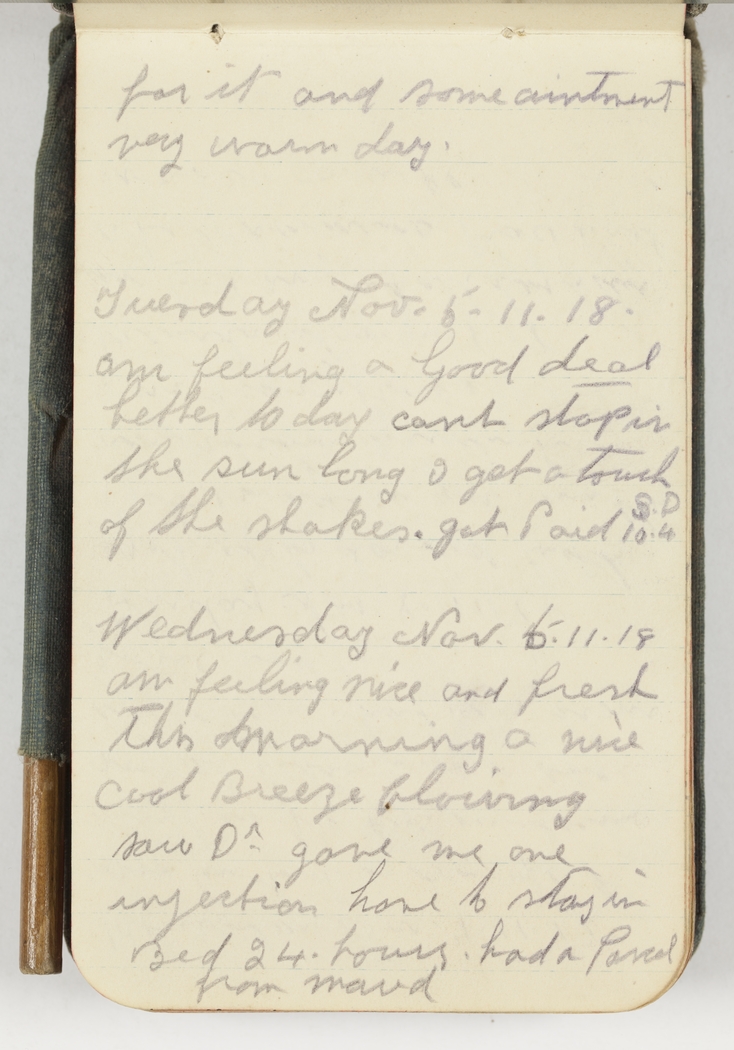 for it and some aintment
very warm day.
Tuesday Nov. 5-11.18.
am feeling a Good deal
better to day cant stop in
the sun long I get a touch
S. D
of the shakes. got Paid 10.4
Wednesday Nov. 6.11.18
am feeling nice and fresh
This morning a nice
Cool Breeze blowing
saw Dr gave me one
injection have to stay in
Bed 24. hours. had a Parcel
from maud